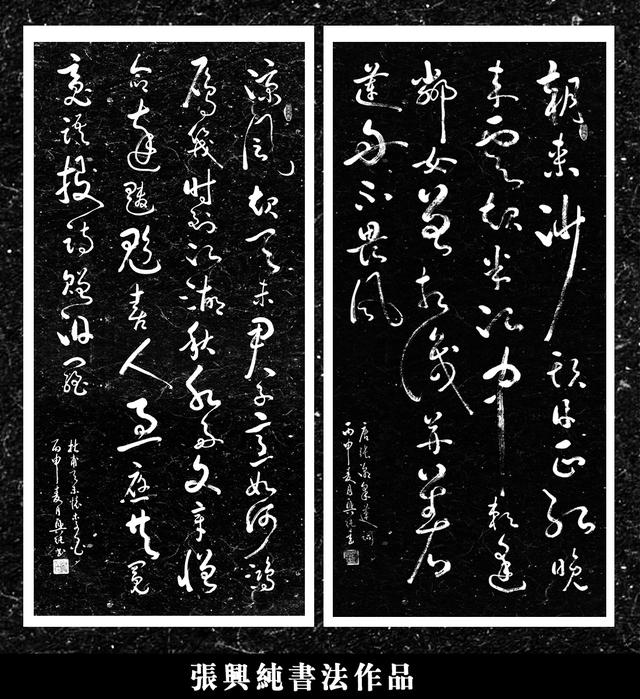 朝來沙頭日正紅晚
來雲起半江中賴逢
鄰女曾相識並著
蓮舟不畏風
唐張潮采蓮詞
丙申夏月興純書
涼風起天末君子意如何鴻
雁幾時到江湖秋水多文章憎
命達魑魅喜人過應共冤
魂語投詩贈汨羅
杜甫天末懷李白
丙申夏月興純書
張興純書法作品